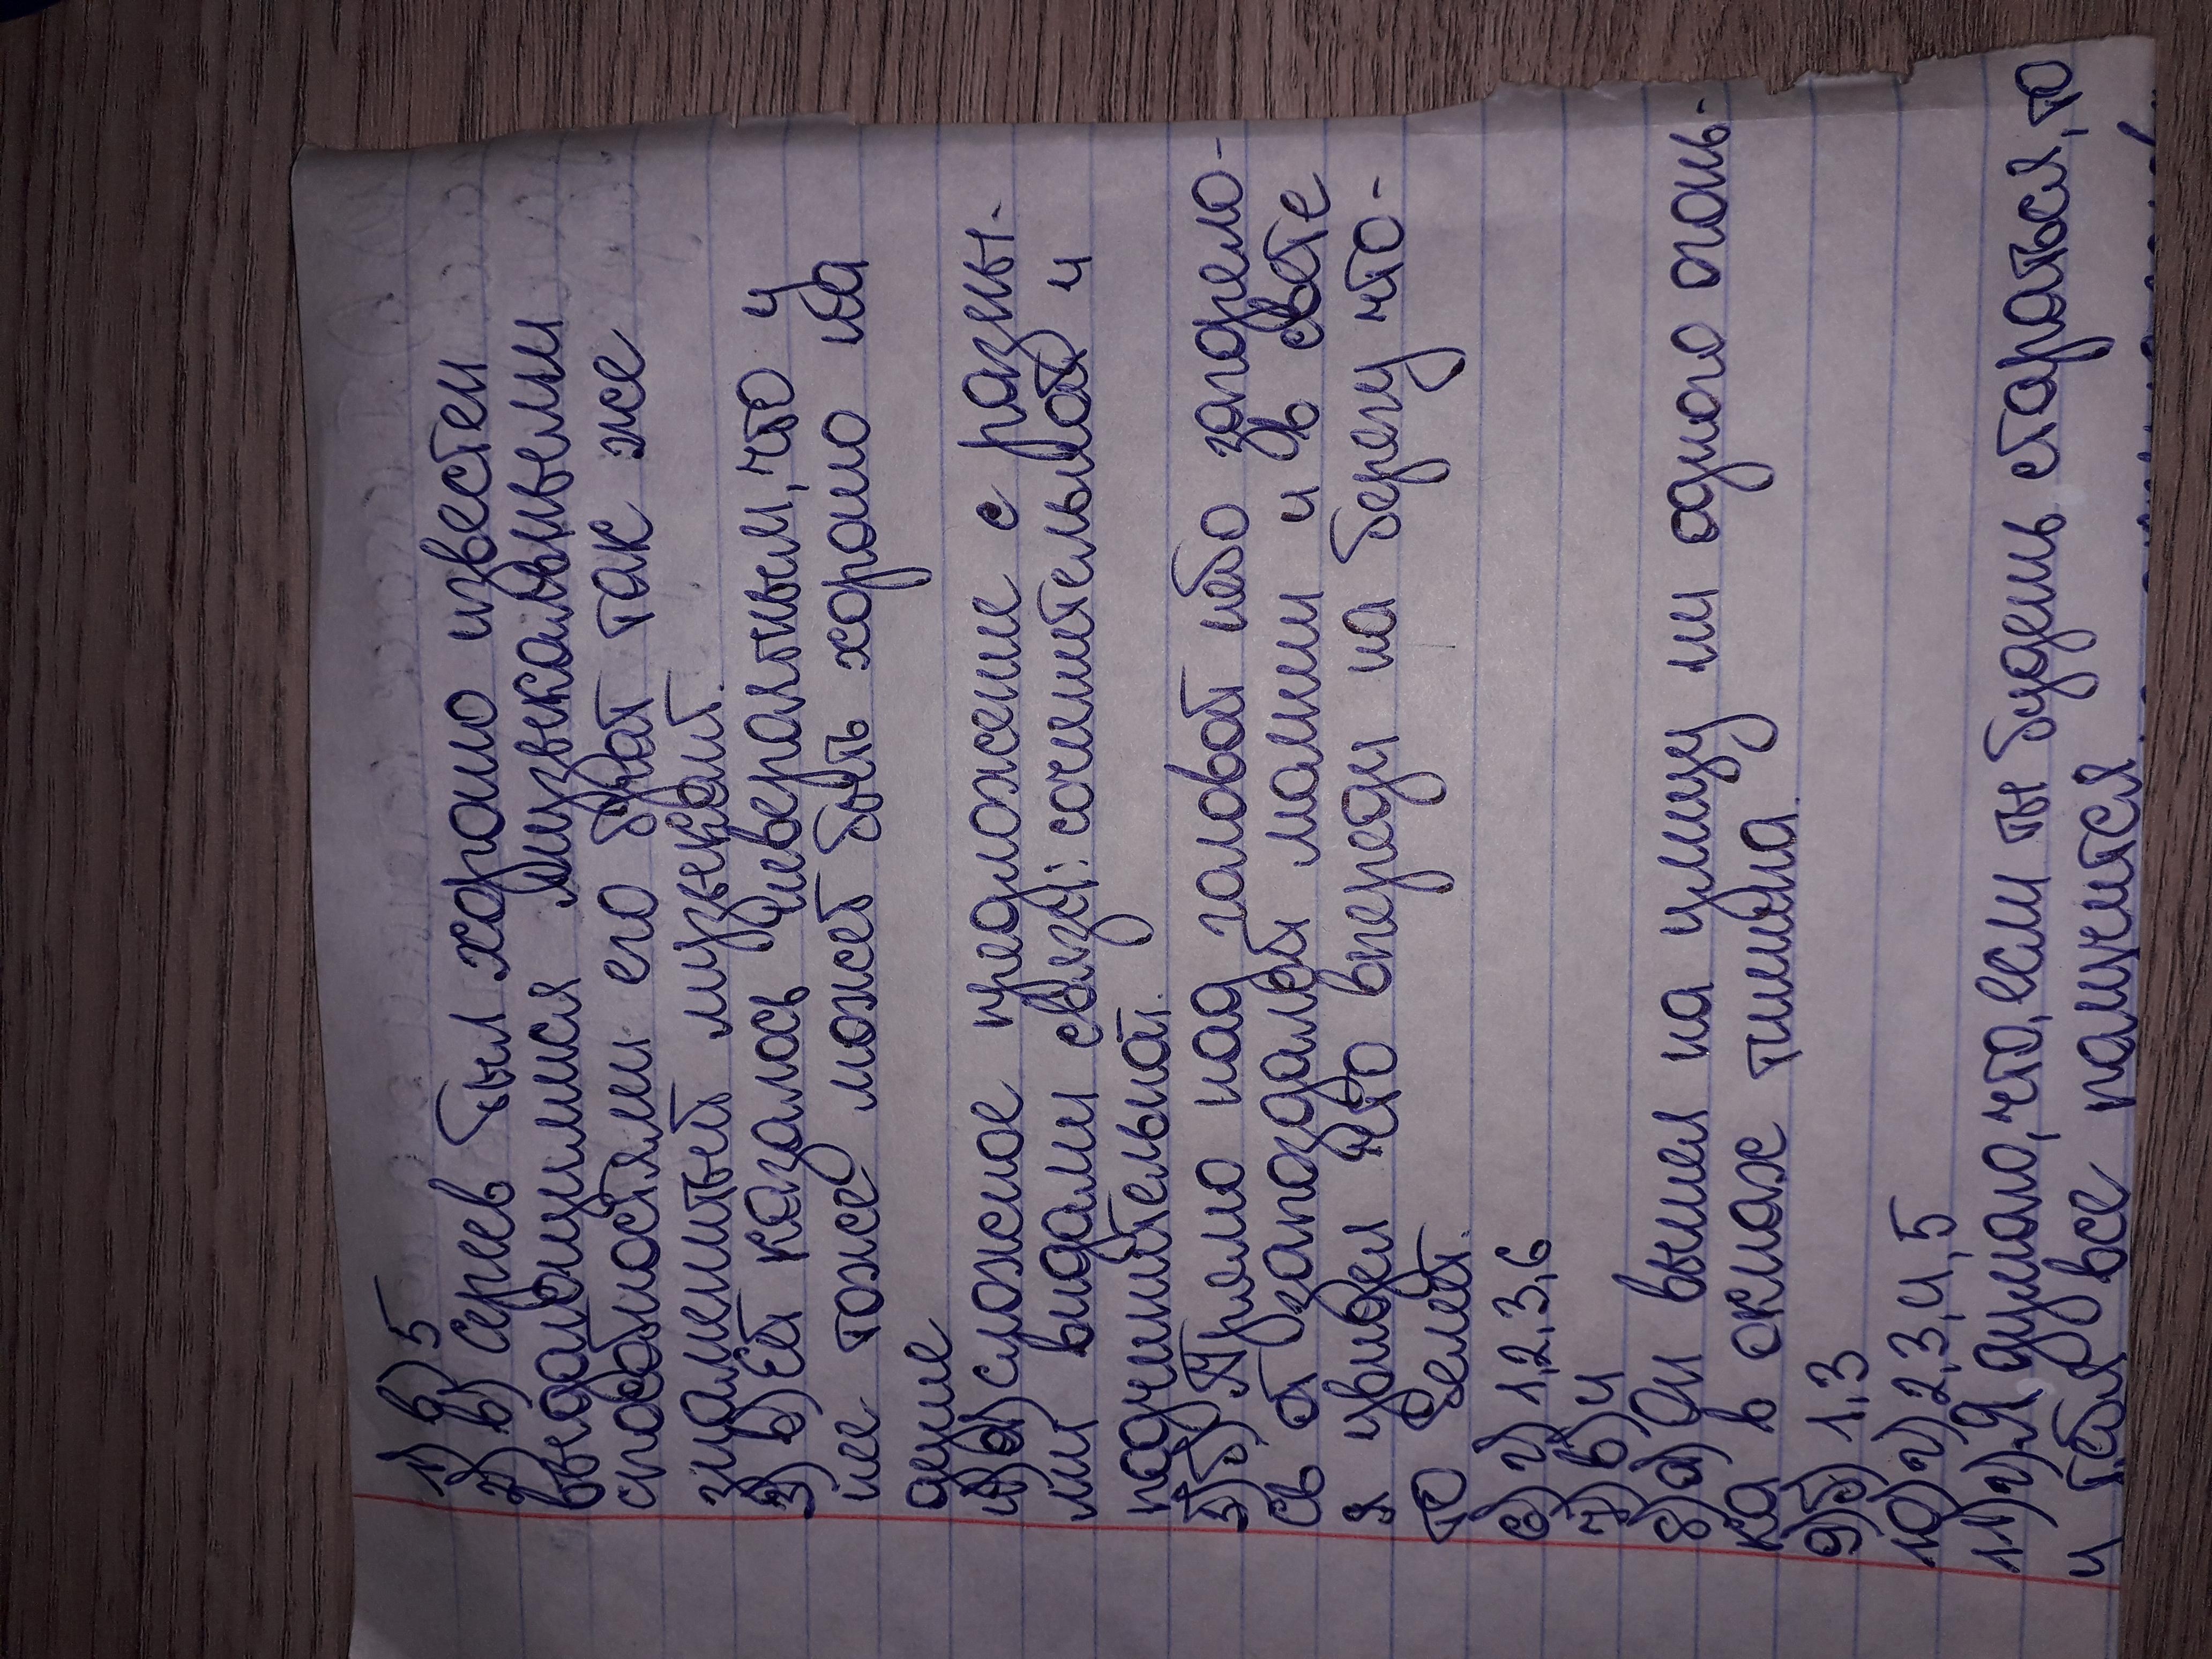 1) б) 5
2) в) серев был хорошо известен
выдающимися музвкальными
способностями его брат так же
знаменитый музыкант.
3) в) Ей казалось невераятным, что и
нее тоже может быть хорошо на
душе
4) а) сложное предложение с разны-
ми видами связи: сочинительной и
подчинительной.
5) б) Прямо над головой небо загрело-
сь от запоздалой молнии и в свете
я увидел что впереди на берегу что-
то белый.
6) г) 1,2,3,6
7) в) 4
8) а) Он вышел на улицу ни одного огонь-
ка в окнах тишина.
9) б) 1,3
10) г) 2,3,4,5
11) г) Я думаю, что, если ты будешь стараться, то
и тебя все палучится